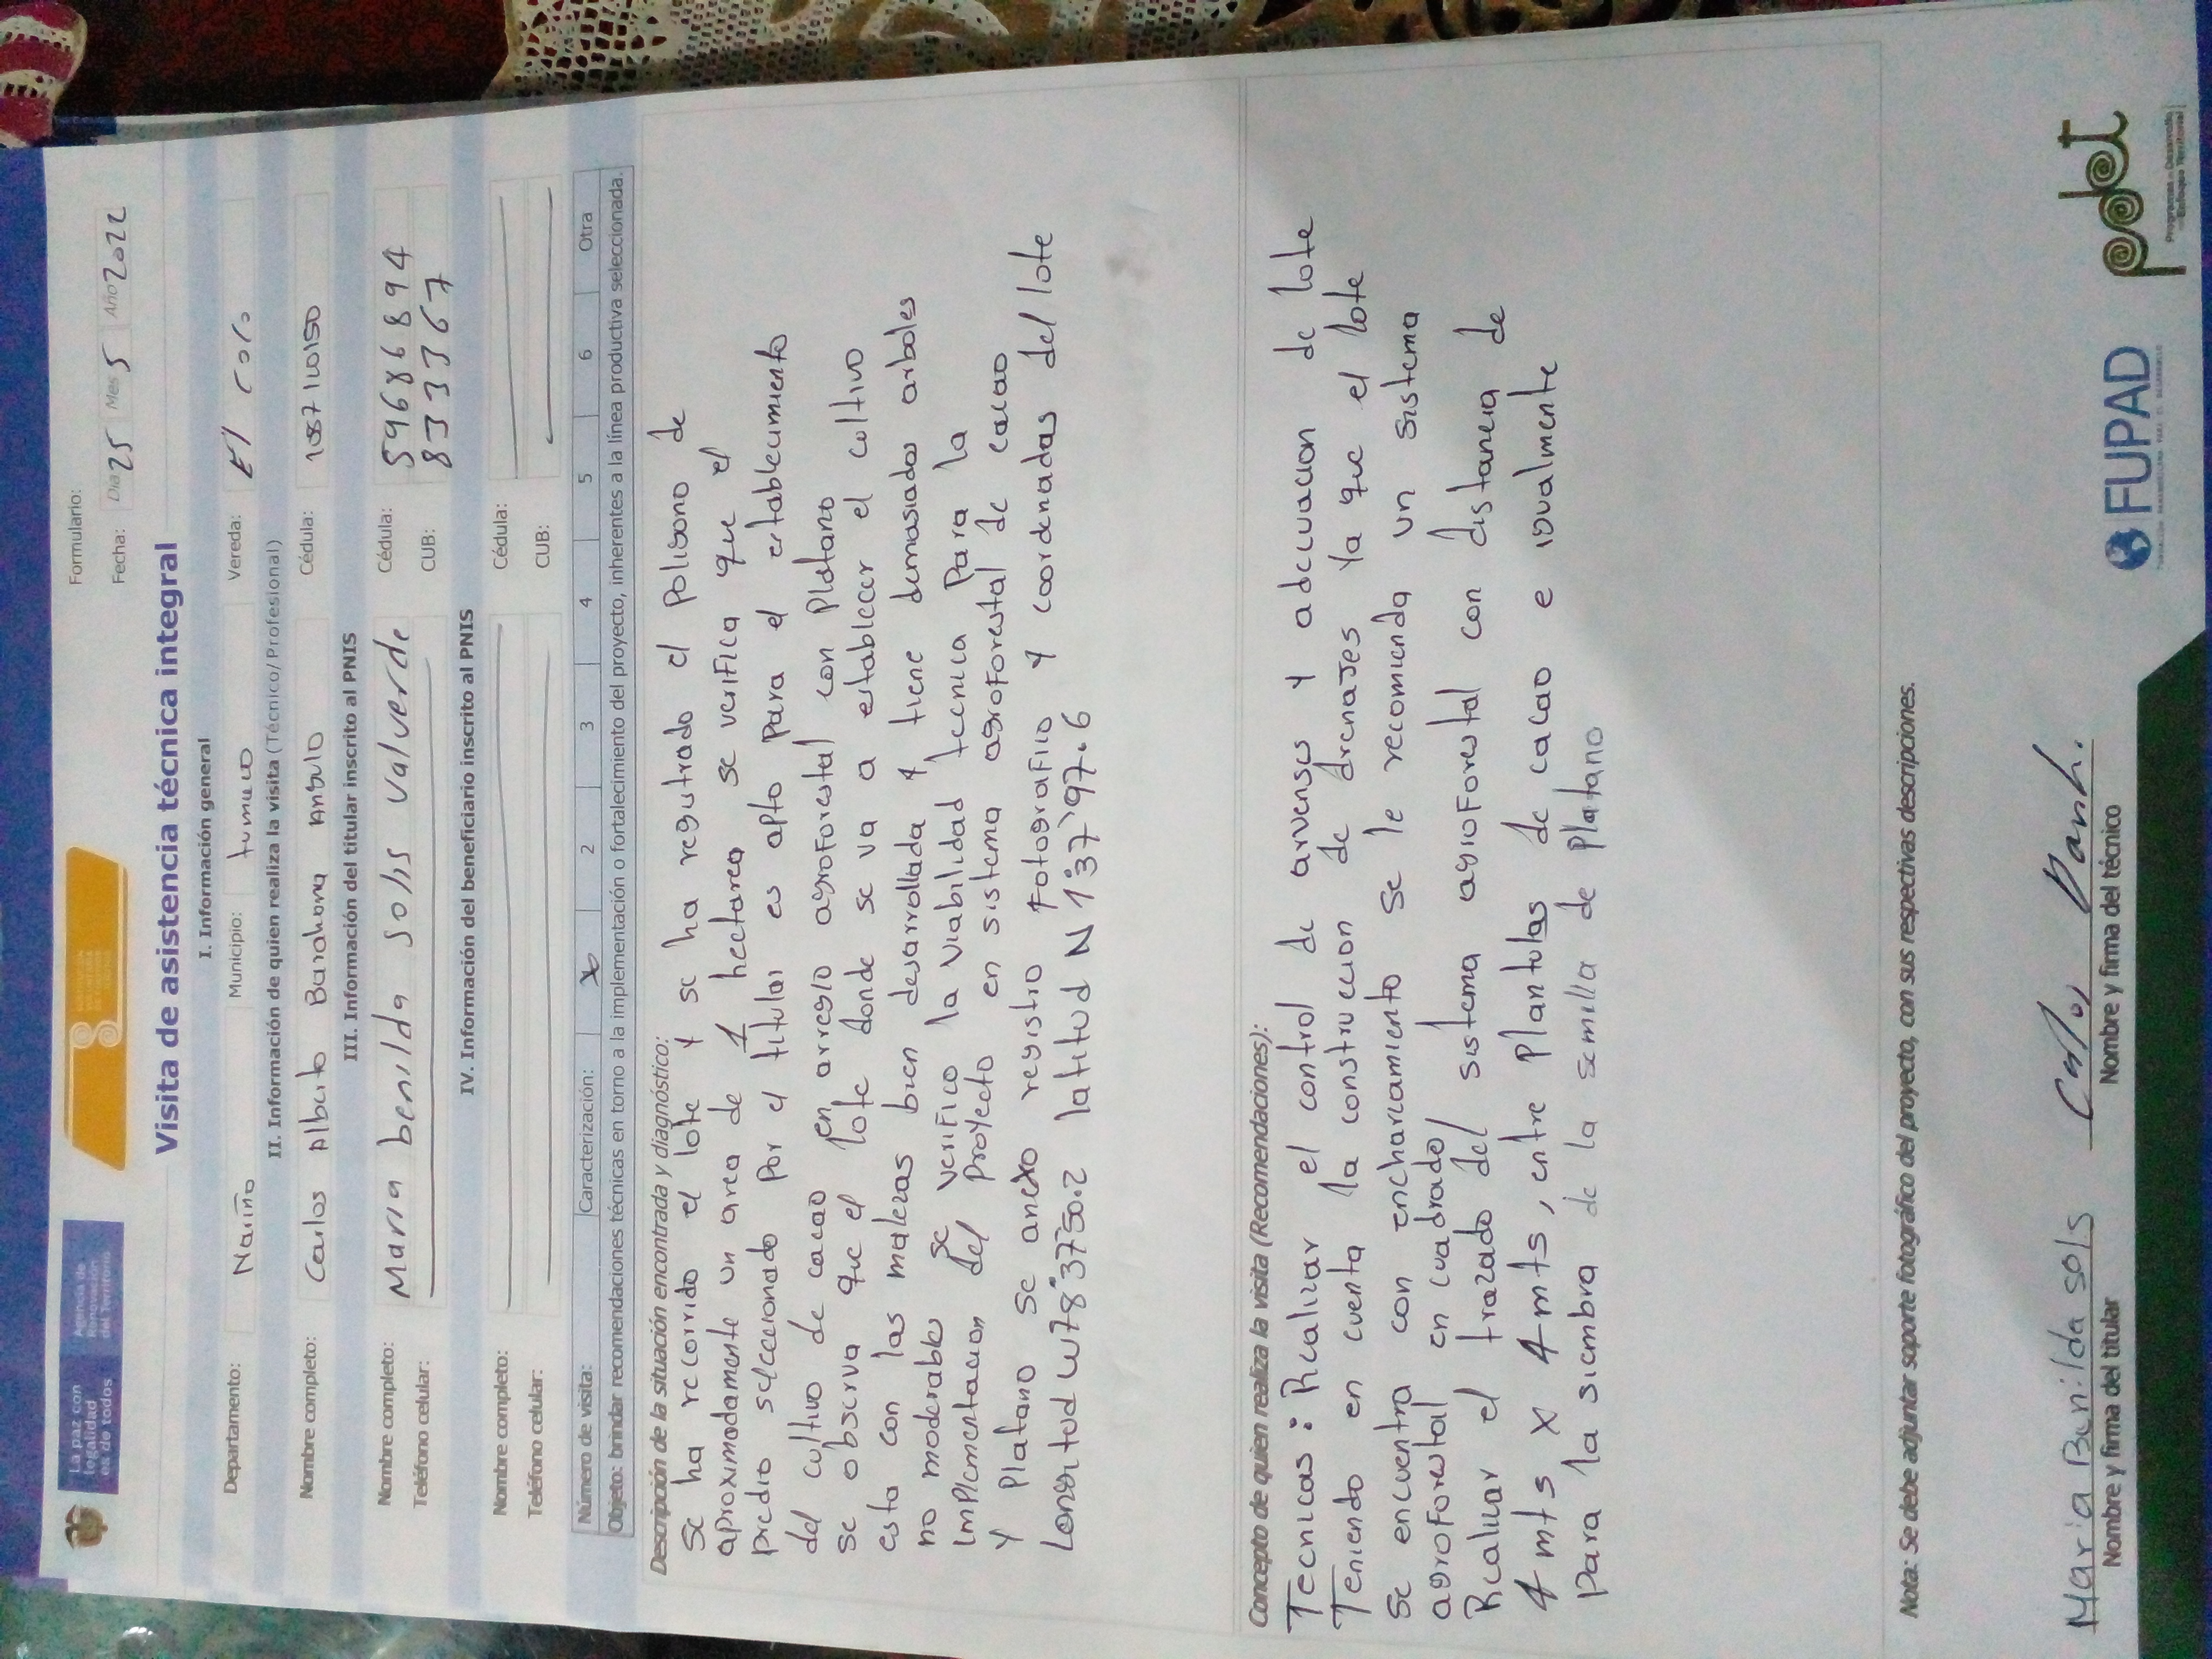 La paz con
legalidad
es de todos
Agencia de
Renovación
del Territorio
Formulario:
Fecha: Día 25 Mes 5 Año 2022
Visita de asistencia técnica integral
I. Información general
Departamento: Nariño Municipio: tumaco Vereda: El coco
II. Información de quien realiza la visita (Técnico/Profesional)
Nombre completo: Carlos Alberto Barahona Angulo Cédula:
III. Información del titular inscrito al PNIS
Nombre completo: Maria benilda solis valverde Cédula: 59686894
Teléfono celular: CUB: 8333367
IV. Información del beneficiario inscrito al PNIS
Nombre completo: Cédula:
Teléfono celular: CUB:
Número de visita: Caracterización: X 2 3 4 5 6 Otra
Objeto: brindar recomendaciones técnicas en torno a la implementación o fortalecimiento del proyecto, inherentes a la línea productiva seleccionada.
Descripción de la situación encontrada y diagnóstico:
Se ha recorrido el lote y se ha regutrado el Poligono de
aproximadamente un area de 1 hectarea se verifica que el
predio seleccionado Por el titular es apto Para el establecimiento
del cultivo de cacao en arreglo agroforestal con Platano
se observa que el lote donde se va a establecer el cultivo
esta con las malezas bien desarrollada y tiene demasiados arboles
no moderables se verifico la viabilidad tecnica Para la
implementacion del Proyecto en sistema agroforestal de cacao
y Platano se anexo registro fotografico y coordenadas del lote
Longitud W78°3750.2 latitud N 1°37'97.6
Concepto de quien realiza la visita (Recomendaciones):
Tecnicas: Realizar el control de arvenses y adecuacion de lote
Teniendo en cuenta la construccion de drenajes Ya que el lote
se encuentra con encharcamiento se le recomienda un sistema
agroforestal en cuadrado
Realizar el trazado del sistema agroforestal con distancia de
4 mts X 4 mts, entre Plantulas de cacao e igualmente
Para la siembra de la semilla de Platano
Nota: Se debe adjuntar soporte fotográfico del proyecto, con sus respectivas descripciones.
Maria Benilda solis
Nombre y firma del titular
Nombre y firma del técnico
FUPAD
pdet
Programas de Desarrollo
con Enfoque Territorial